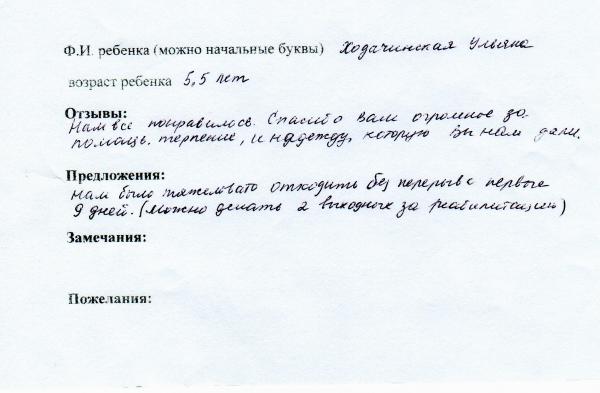 Ф.И. ребенка (можно начальные буквы) Ходачинская Ульяна
возраст ребенка 5,5 лет
Отзывы:
Нам все понравилось. Спасибо Вам огромное за
помощь, терпение, и надежду, которую Вы нам дали.
Предложения:
Нам было тяжеловато отходить без перерыва первые
9 дней. (Можно делать 2 выходных за реабилитацию)
Замечания:
Пожелания: